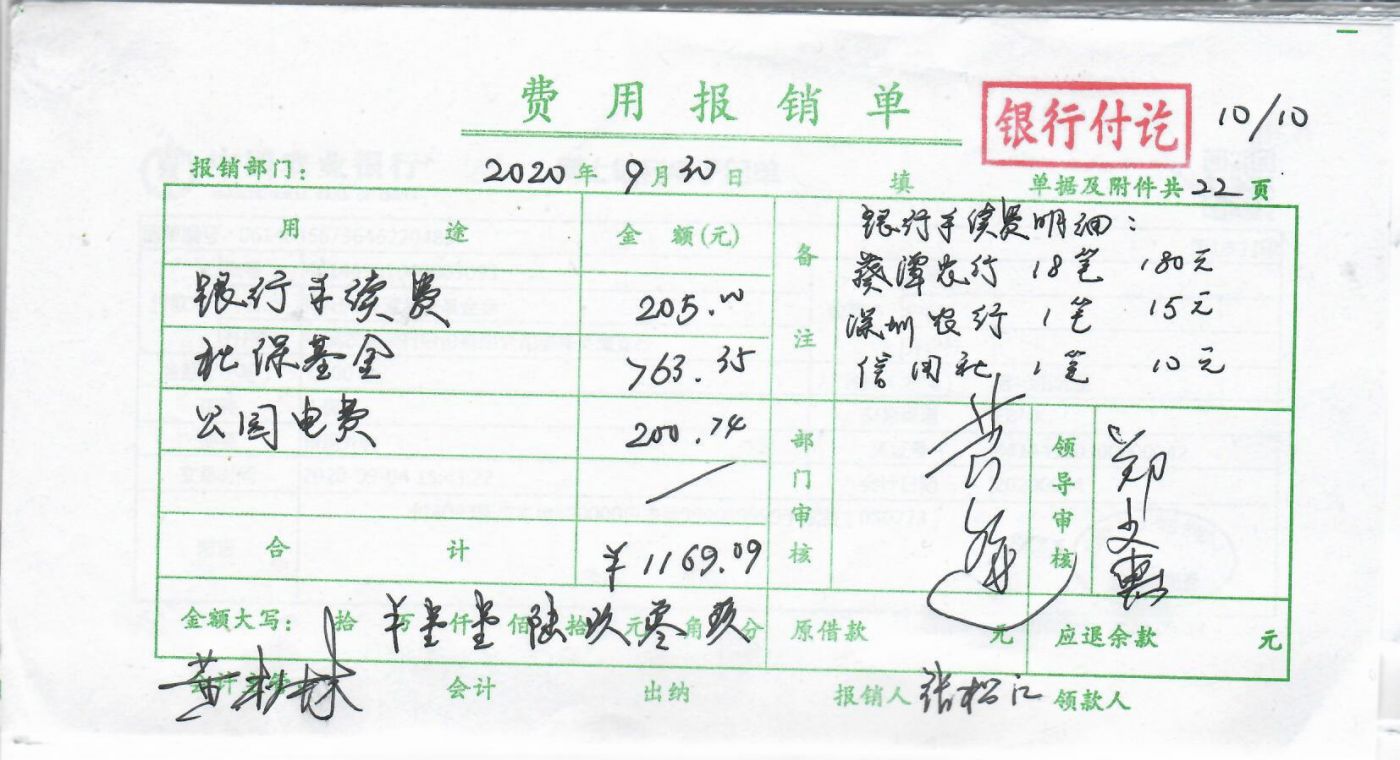 费用报销单
银行付讫 10/10
报销部门: 2020年9月30日 填 单据及附件共22页
用途 金额(元) 备注 银行手续费明细:
葵潭农行 18笔 180元
银行手续费 205.00 深圳农行 1笔 15元
社保基金 763.35 信用社 1笔 10元
公园电费 200.74 部门审核 领导审核 郑文惠
合计 ¥1169.09
金额大写: 拾万¥壹仟壹佰陆拾玖元零角玖分 原借款 元 应退余款 元
会计 出纳 报销人 张松江 领款人